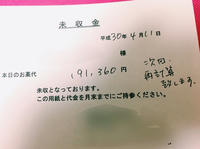 未収金
平成30年4月11日
様
本日のお薬代 191,360円
未収となっております。
この用紙と代金を月末までにご持参ください。
次回
再計算
致します。